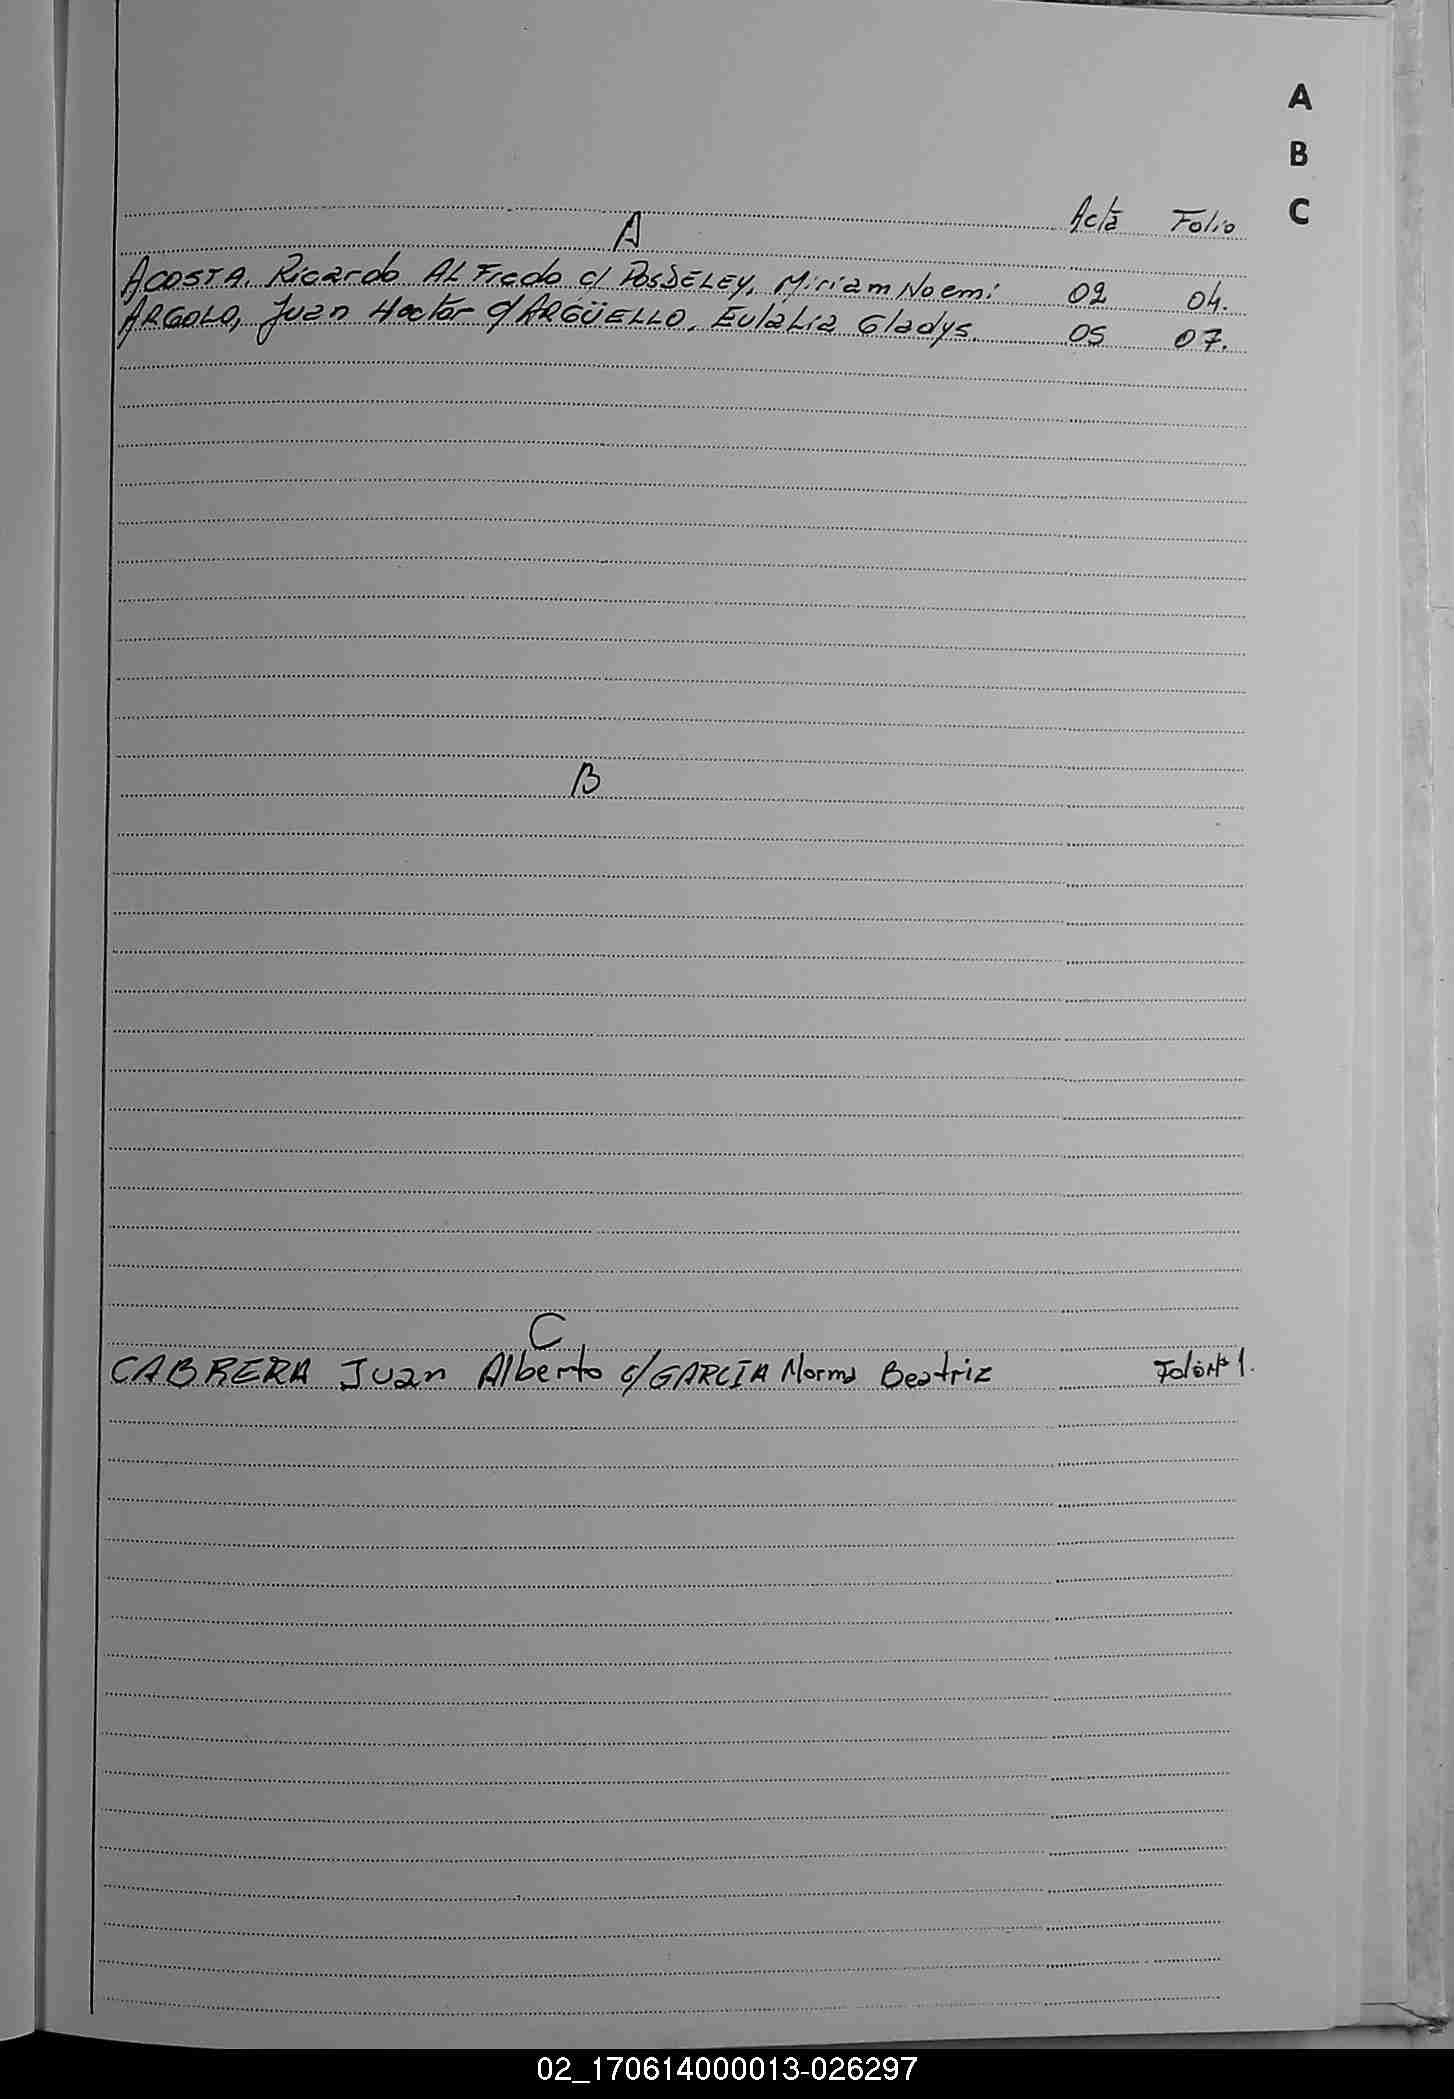 A
B
C
Acta Folio
A
ACOSTA, Ricardo Alfredo c/ POSDELEY, Miriam Noemi 02 04.
ARGOLO, Juan Hector c/ ARGÜELLO, Eulalia Gladys. 05 07.
B
C
CABRERA Juan Alberto c/ GARCÍA Norma Beatriz Folio Nº 1.
02_170614000013-026297